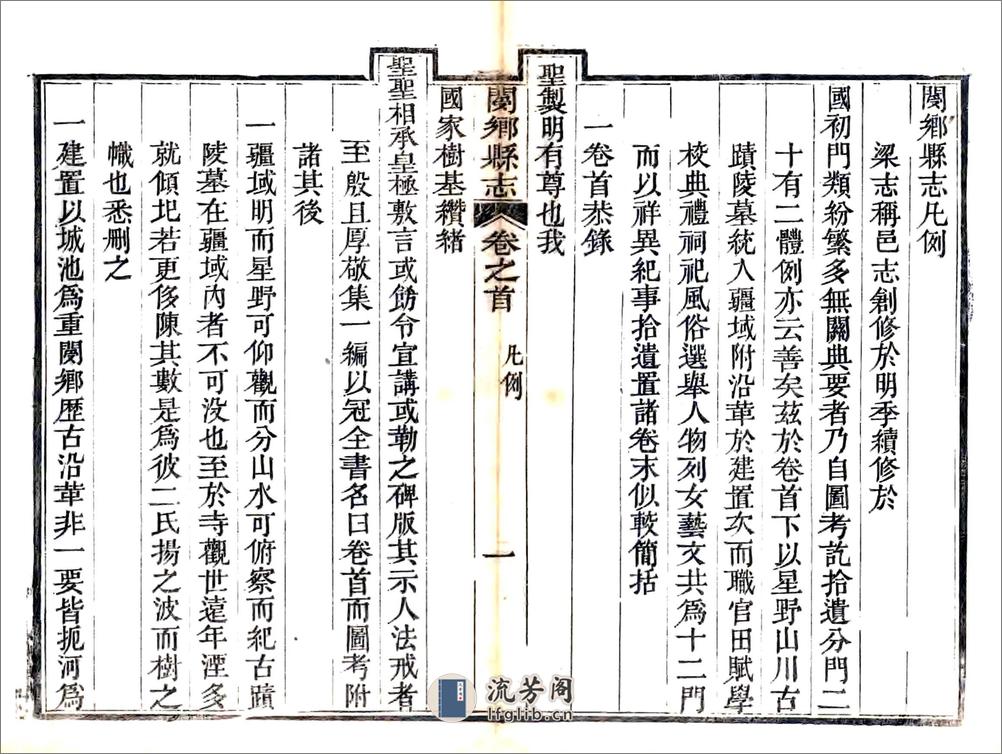 閿鄉縣志凡例
梁志稱邑志創修於明季續修於
國初門類紛繁多無關典要者乃自圖考訖拾遺分門二
十有二體例亦云善矣茲於卷首下以星野山川古
蹟陵墓統入疆域附沿革於建置次而職官田賦學
校典禮祠祀風俗選舉人物列女藝文共爲十二門
而以祥異紀事拾遺置諸卷末似較簡括
一卷首恭錄
聖製明有尊也我
閿鄉縣志 卷之首 凡例 一
國家樹基纘緒
聖聖相承皇極敷言或飭令宣講或勒之碑版其示人法戒者
至殷且厚敬集一編以冠全書名曰卷首而圖考附
諸其後
一疆域明而星野可仰觀而分山水可俯察而紀古蹟
陵墓在疆域內者不可沒也至於寺觀世遠年湮多
就傾圮若更侈陳其數是爲彼二氏揚之波而樹之
幟也悉刪之
一建置以城池爲重閿鄉歷古沿革非一要皆扼河爲
流芳阁
lfglib.cn